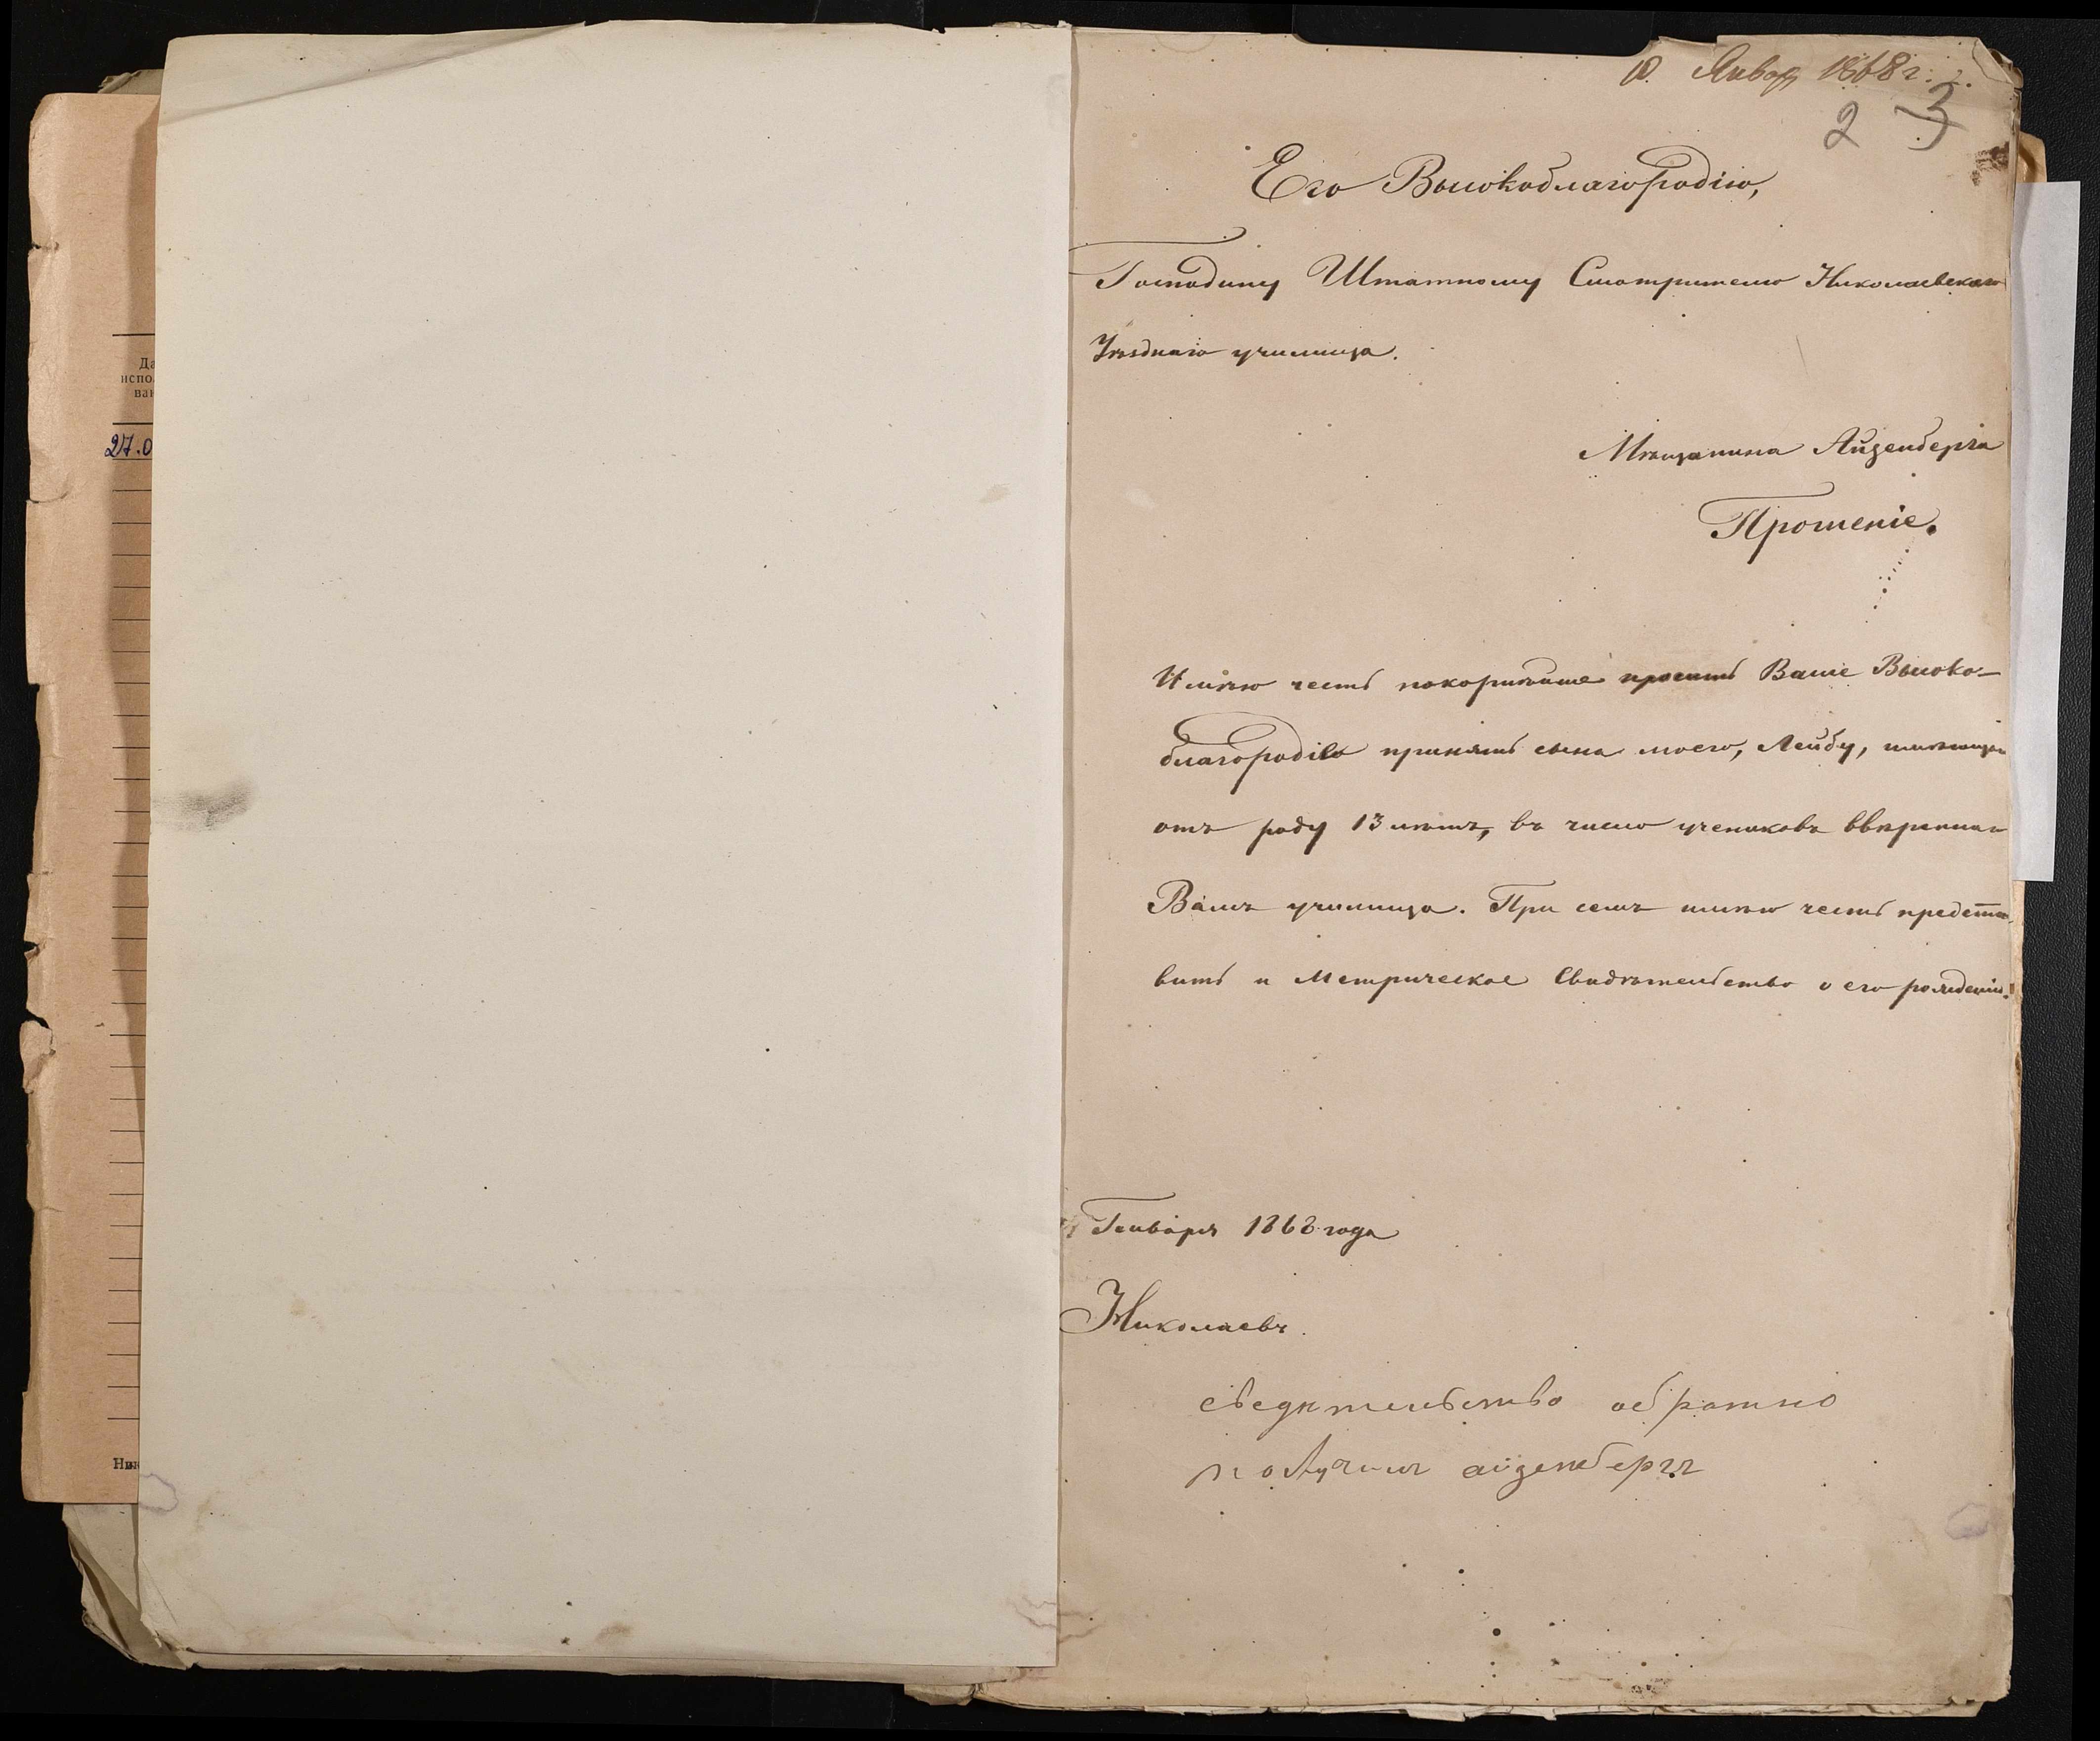 Да
испо
ван
27.0
Ник
10. Января 1868 г.
2 3
Его Высокоблагородію,
Господину Штатному Смотрителю Николаевскаго
Уѣзднаго училища.
Мѣщанина Айзенберга
Прошеніе.
Имѣю честь покорнѣйше просить Ваше Высоко-
благородіе принять сына моего, Лейбу, имѣющаго
отъ роду 13 лѣтъ, въ число учениковъ ввѣреннаго
Вамъ училища. При семъ имѣю честь предста-
вить и Метрическое Свидѣтельство о его рожденіи.
Генваря 1868 года
Николаевъ.
сведѣтельство обратно
получилъ айзенбергъ